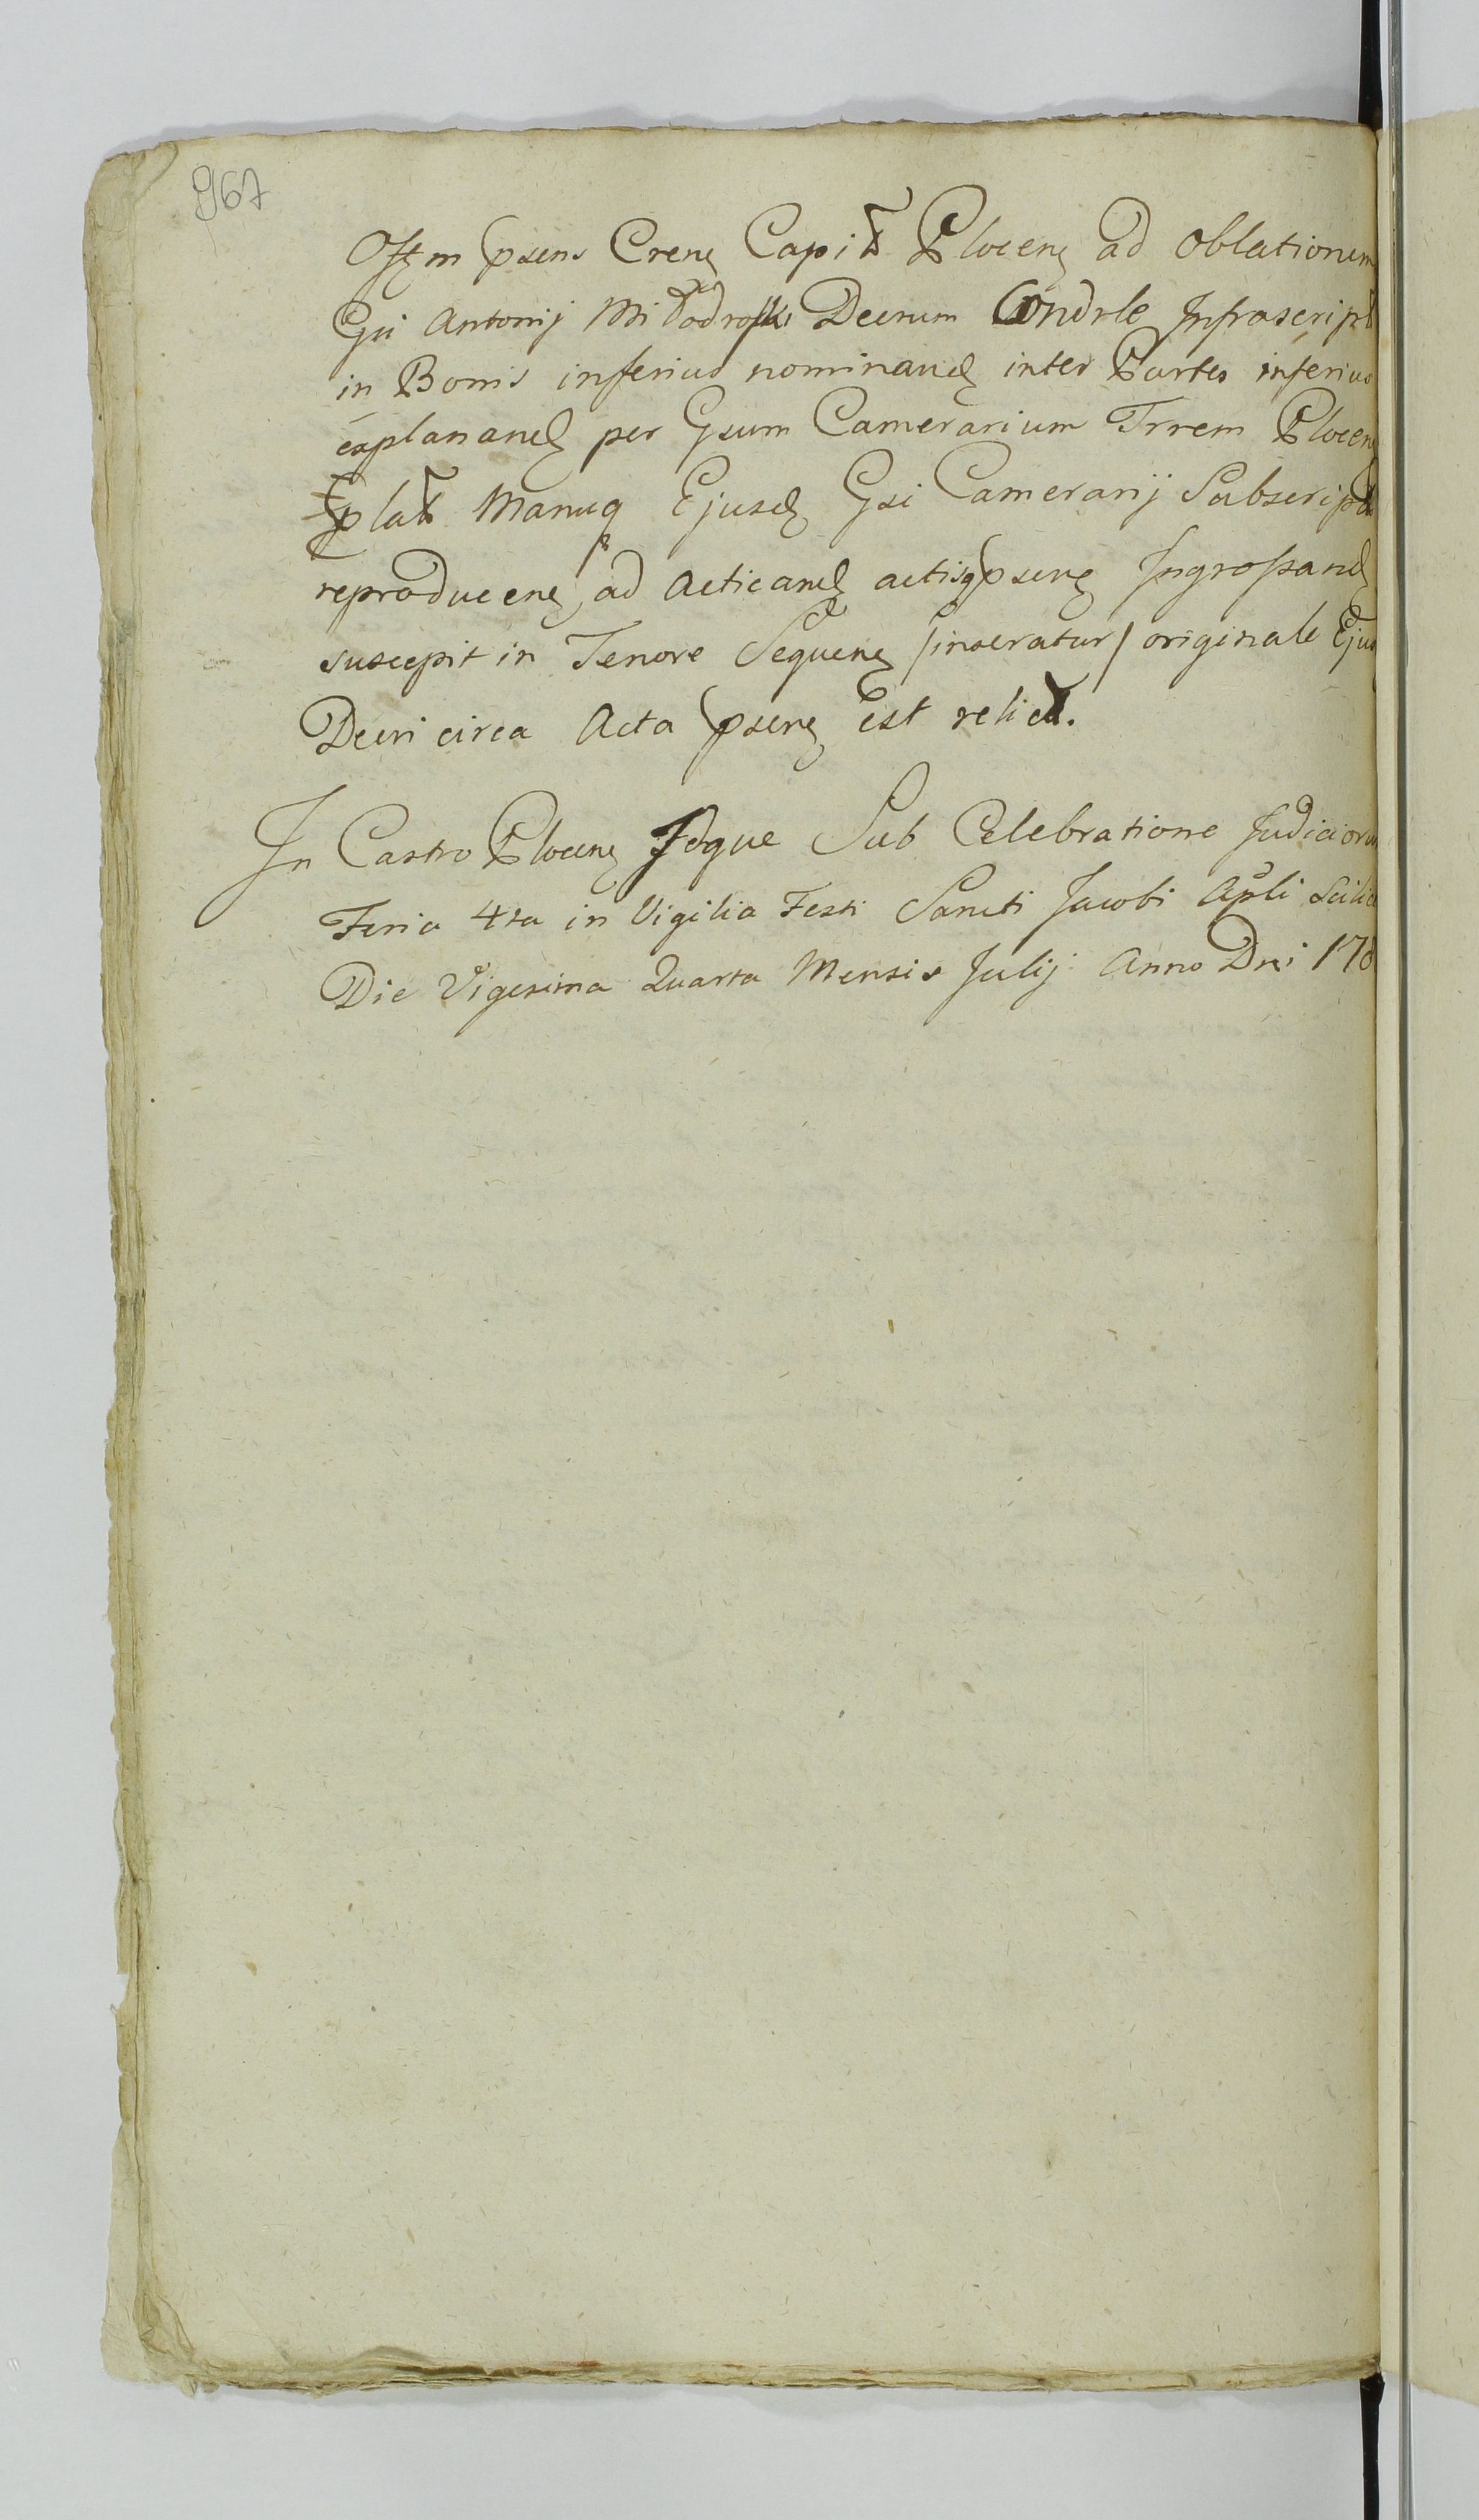 967
Offm psens Crens Capit Plocens ad Oblationem
Gsi Antonij Miłodroski Decrum Condrle Infrascript
in Bonis inferius nominand inter Partes inferius
explanand per Gsum Camerarium Trrem Plocens
Explat Manuq Ejusd Gsi Camerarij Subscript
reproducens, ad acticand actisq psens Ingrossand
suscepit in Tenore Sequens /inseratur/ originale Ejus
Decri circa Acta psens est relict.
In Castro Plocens Idque Sub Celebratione Judiciorum
Feria 4ta in Vigilia Festi Sancti Jacobi Apli Scilicet
Die Vigesima Quarta Mensis Julij Anno Dni 178